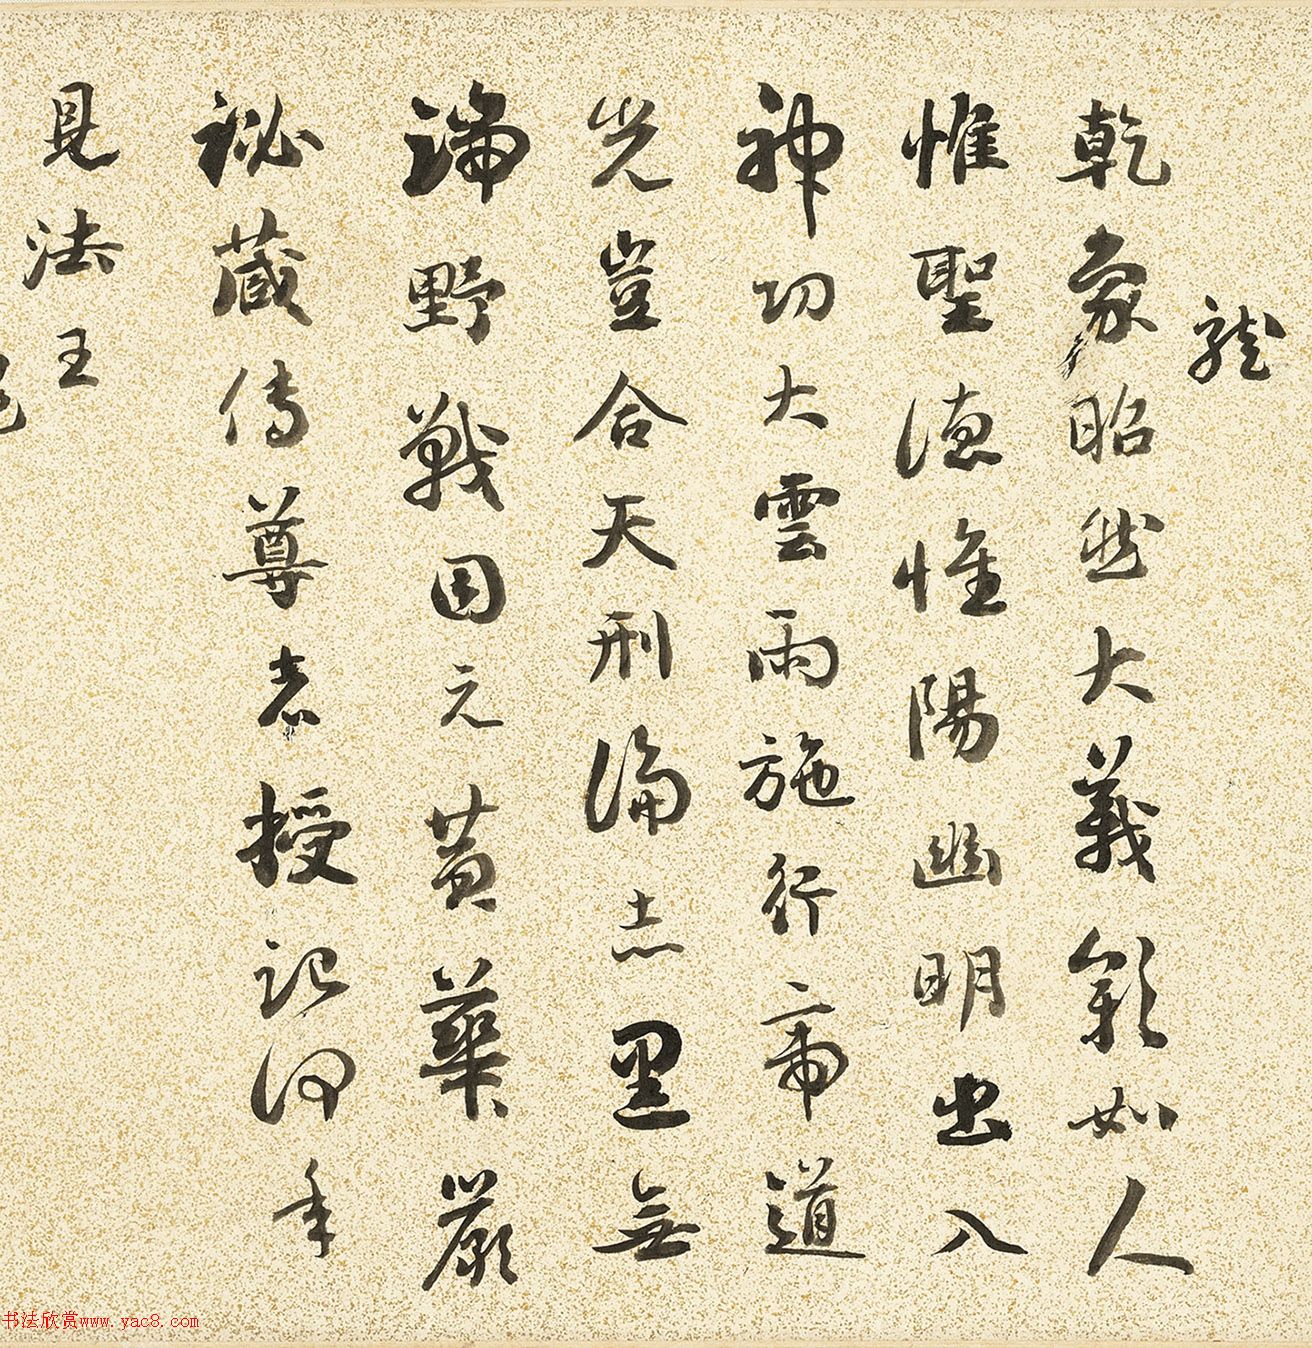 龍
乾象昭然大義彰如人
惟聖德惟陽幽明出入
神功大雲雨施行帝道
光豈合天刑淪亦里無
端野戰困元黃華嚴
祕藏傳尊者授記何年
見法王
书法欣赏www.yac8.com